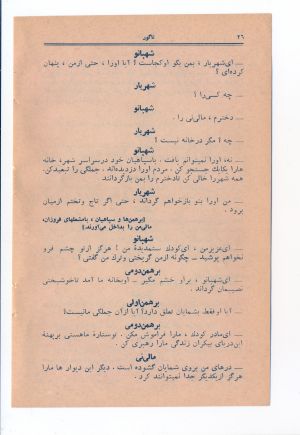 ۲۶ تاگور
شهبانو
— ای‌شهریار ، بمن بگو اوکجاست ! آیا اورا ، حتی ازمن ، پنهان
کرده‌ای ؟
شهریار
— چه کسی‌را !
شهبانو
— دخترم ، مالی‌نی را .
شهریار
— چه ! مگر درخانه نیست ؟
شهبانو
— نه، اورا نمیتوانم یافت . باسپاهیان خود درسراسر شهر، خانه
هارا یکایک جستجو کن . مردم اورا دزدیده‌اند. جملگی را تبعیدکن.
همه شهررا خالی کن تادخترم را بمن بازگردانند
شهریار
— من اورا بتو بازخواهم گرداند ، حتی اگر تاج وتختم ازمیان
برود .
(برهمن‌ها و سپاهیان ، بامشعلهای فروزان،
مالی‌نی را بداخل می‌آورند.)
شهبانو
— ای‌عزیزمن ، ای‌کودك ستمدیدهٔ من ! هرگز ازتو چشم فرو
نخواهم پوشید . چگونه ازمن گریختی وترك من گفتی ؟
برهمن‌دومی
— ای‌شهبانو ، براو خشم مگیر . اوبخانه ما آمد تاخوشبختی
نصیبمان گرداند .
برهمن‌اولی
— آیا اوفقط بشمایان تعلق دارد؟ آیا ازآن جملگی مانیست؟
برهمن‌دومی
— ای‌مادر کودك ، مارا فراموش مکن . توستارهٔ ماهستی برپهنهٔ
این‌دریای بیکران زندگی مارا رهبری کن .
مالی‌نی
— درهای من بروی شمایان گشوده است . دیگر این دیوار ها مارا
هرگز ازیکدیگر جدا نمیتوانند کرد .